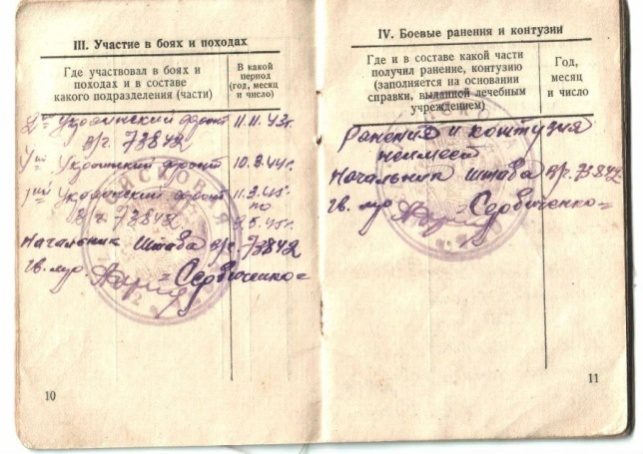 III. Участие в боях и походах
Где участвовал в боях и
походах и в составе
какого подразделения (части)
В какой
период
(год, месяц
и число)
Украинский фронт 11.11.43г.
в/г. 73842
Украинский фронт 10.3.44г.
Украинский фронт 11.3.45г.
по
73842 9.5.45г.
Начальник Штаба в/г. 73842
гв. м-р
=Сердюченко=
10
IV. Боевые ранения и контузии
Где и в составе какой части
получил ранение, контузию
(заполняется на основании
справки, выданной лечебным
учреждением)
Год,
месяц
и число
Ранение и контузия
неимеет
Начальник Штаба в/г. 73842
гв. м-р
=Сердюченко=
11